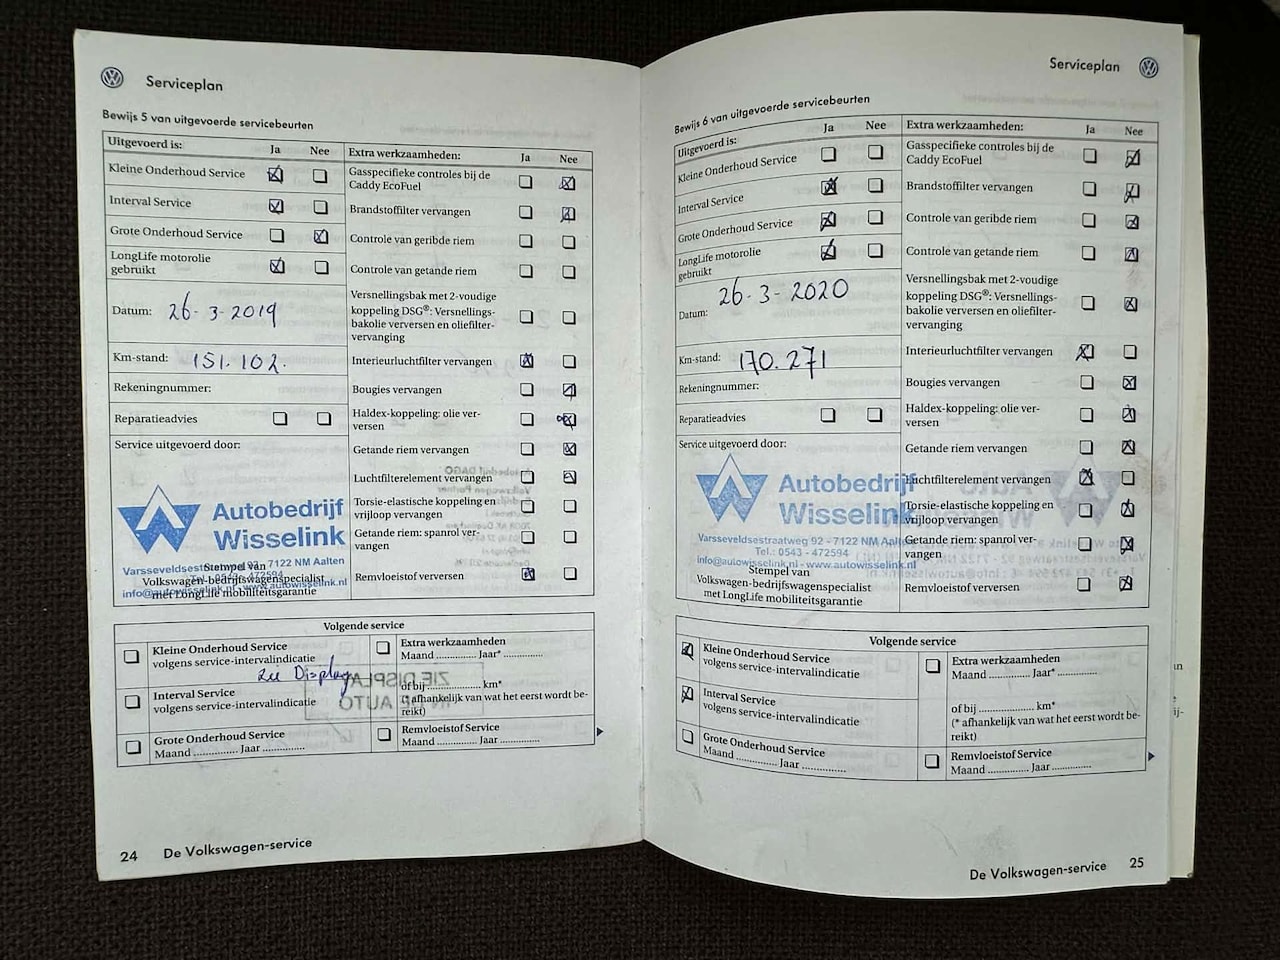 Serviceplan
Bewijs 5 van uitgevoerde servicebeurten
Uitgevoerd is: Ja Nee
Kleine Onderhoud Service
Interval Service
Grote Onderhoud Service
LongLife motorolie
gebruikt
Datum: 26-3-2019
Km-stand: 151.102.
Rekeningnummer:
Reparatieadvies
Service uitgevoerd door:
Autobedrijf
Wisselink
7122 NM Aalten
Stempel van
Volkswagen-bedrijfswagenspecialist
met LongLife mobiliteitsgarantie
Extra werkzaamheden: Ja Nee
Gasspecifieke controles bij de
Caddy EcoFuel
Brandstoffilter vervangen
Controle van geribde riem
Controle van getande riem
Versnellingsbak met 2-voudige
koppeling DSG®: Versnellings-
bakolie verversen en oliefilter-
vervanging
Interieurluchtfilter vervangen
Bougies vervangen
Haldex-koppeling: olie ver-
versen
Getande riem vervangen
Luchtfilterelement vervangen
Torsie-elastische koppeling en
vrijloop vervangen
Getande riem: spanrol ver-
vangen
Remvloeistof verversen
Volgende service
Kleine Onderhoud Service
volgens service-intervalindicatie
zie Display
Interval Service
volgens service-intervalindicatie
Grote Onderhoud Service
Maand .............. Jaar ..............
Extra werkzaamheden
Maand .............. Jaar* ..............
of bij .................. km*
(* afhankelijk van wat het eerst wordt be-
reikt)
Remvloeistof Service
Maand .............. Jaar ..............
24 De Volkswagen-service
Serviceplan
Bewijs 6 van uitgevoerde servicebeurten
Uitgevoerd is: Ja Nee
Kleine Onderhoud Service
Interval Service
Grote Onderhoud Service
LongLife motorolie
gebruikt
Datum: 26-3-2020
Km-stand: 170.271
Rekeningnummer:
Reparatieadvies
Service uitgevoerd door:
Autobedrijf
Wisselink
Varsseveldsestraatweg 92 - 7122 NM Aalten
Tel.: 0543 - 472594
info@autowisselink.nl - www.autowisselink.nl
Stempel van
Volkswagen-bedrijfswagenspecialist
met LongLife mobiliteitsgarantie
Extra werkzaamheden: Ja Nee
Gasspecifieke controles bij de
Caddy EcoFuel
Brandstoffilter vervangen
Controle van geribde riem
Controle van getande riem
Versnellingsbak met 2-voudige
koppeling DSG®: Versnellings-
bakolie verversen en oliefilter-
vervanging
Interieurluchtfilter vervangen
Bougies vervangen
Haldex-koppeling: olie ver-
versen
Getande riem vervangen
Luchtfilterelement vervangen
Torsie-elastische koppeling en
vrijloop vervangen
Getande riem: spanrol ver-
vangen
Remvloeistof verversen
Volgende service
Kleine Onderhoud Service
volgens service-intervalindicatie
Interval Service
volgens service-intervalindicatie
Grote Onderhoud Service
Maand .............. Jaar ..............
Extra werkzaamheden
Maand .............. Jaar* ..............
of bij .................. km*
(* afhankelijk van wat het eerst wordt be-
reikt)
Remvloeistof Service
Maand .............. Jaar ..............
De Volkswagen-service 25